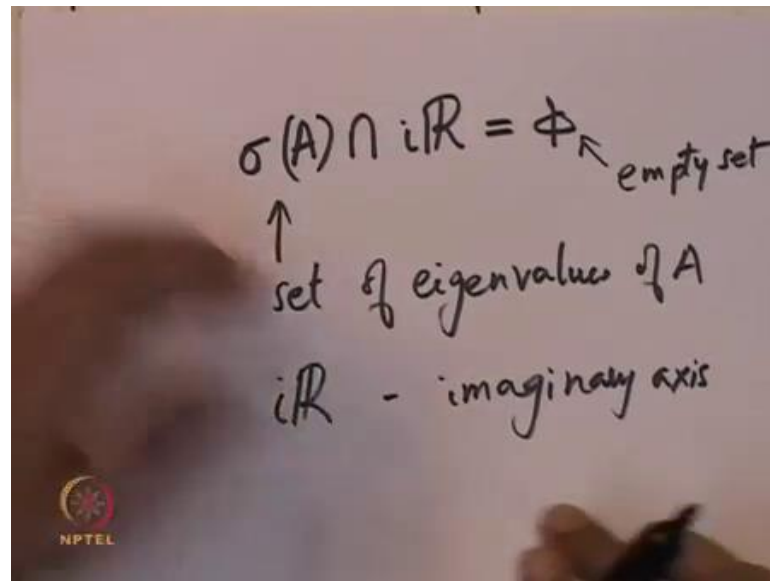 σ(A) ∩ iℝ = ϕ
empty set
set of eigenvalues of A
iℝ - imaginary axis
NPTEL